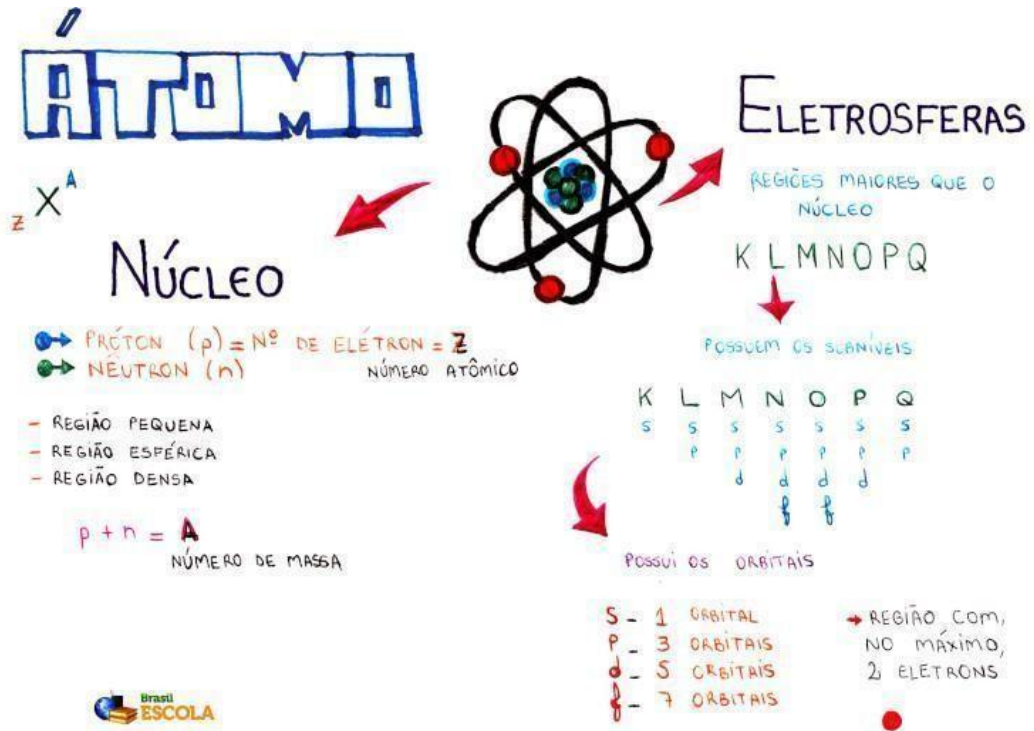 ÁTOMO
Z X A
NÚCLEO
PRÓTON (p) = Nº DE ELÉTRON = Z
NÊUTRON (n) NÚMERO ATÔMICO
- REGIÃO PEQUENA
- REGIÃO ESFÉRICA
- REGIÃO DENSA
p + n = A
NÚMERO DE MASSA
Brasil
ESCOLA
ELETROSFERAS
REGIÕES MAIORES QUE O
NÚCLEO
K L M N O P Q
POSSUEM OS SUBNÍVEIS
K L M N O P Q
s s s s s s s
p p p p p p
d d d d
f f
POSSUI OS ORBITAIS
S - 1 ORBITAL
P - 3 ORBITAIS
d - 5 ORBITAIS
f - 7 ORBITAIS
→ REGIÃO COM,
NO MÁXIMO,
2 ELETRONS